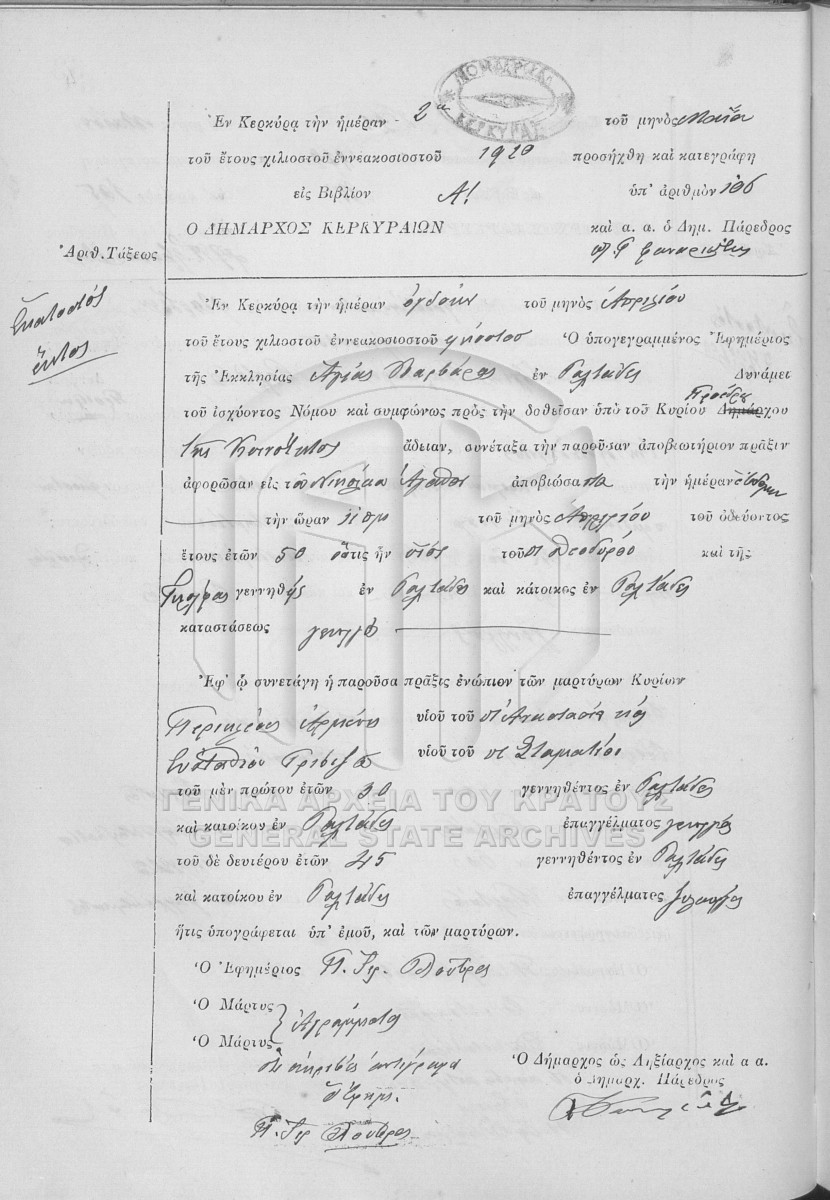 ΝΟΜΑΡΧΙΑ
ΚΕΡΚΥΡΑΣ
Ἐν Κερκύρᾳ τὴν ἡμέραν 2α τοῦ μηνὸς Μαΐου
τοῦ ἔτους χιλιοστοῦ ἐννεακοσιοστοῦ 1920 προσήχθη καὶ κατεγράφη
εἰς Βιβλίον Α! ὑπ' ἀριθμὸν 106
Ο ΔΗΜΑΡΧΟΣ ΚΕΡΚΥΡΑΙΩΝ καὶ α. α. ὁ Δημ. Πάρεδρος
Ἀριθ. Τάξεως
Ἑκατοστός
ἕκτος
Ἐν Κερκύρᾳ τὴν ἡμέραν ὀγδόην τοῦ μηνὸς Ἀπριλίου
τοῦ ἔτους χιλιοστοῦ ἐννεακοσιοστοῦ εἰκοστοῦ Ὁ ὑπογεγραμμένος Ἐφημέριος
τῆς Ἐκκλησίας Ἁγίας Βαρβάρας ἐν Δυνάμει
Προέδρου
τοῦ ἰσχύοντος Νόμου καὶ συμφώνως πρὸς τὴν δοθεῖσαν ὑπὸ τοῦ Κυρίου Δημάρχου
τῆς Κοινότητος ἄδειαν, συνέταξα τὴν παροῦσαν ἀποβιωτήριον πρᾶξιν
ἀφορῶσαν εἰς τὸν Νικόλαον ἀποβιώσαντα τὴν ἡμέραν ἑβδόμην
τὴν ὥραν τοῦ μηνὸς Ἀπριλίου τοῦ ὁδεύοντος
ἔτους ἐτῶν 50 ὅστις ἦν υἱὸς τοῦ π Θεοδώρου καὶ τῆς
γεννηθεὶς ἐν καὶ κάτοικος ἐν
καταστάσεως γεωργὸς
Ἐφ' ᾧ συνετάγη ἡ παροῦσα πρᾶξις ἐνώπιον τῶν μαρτύρων Κυρίων
Περικλέους Ἀρμένη υἱοῦ τοῦ π Ἀναστασίου καὶ
Εὐσταθίου υἱοῦ τοῦ π Σταματίου
τοῦ μὲν πρώτου ἐτῶν 30 γεννηθέντος ἐν
ΓΕΝΙΚΑ ΑΡΧΕΙΑ ΤΟΥ ΚΡΑΤΟΥΣ
καὶ κατοίκου ἐν ἐπαγγέλματος γεωργὸς
GENERAL STATE ARCHIVES
τοῦ δὲ δευτέρου ἐτῶν 45 γεννηθέντος ἐν
καὶ κατοίκου ἐν ἐπαγγέλματος
ἥτις ὑπογράφεται ὑπ' ἐμοῦ, καὶ τῶν μαρτύρων.
Ὁ Ἐφημέριος Π.
Ὁ Μάρτυς
Ἀγράμματοι
Ὁ Μάρτυς
ἀκριβὲς ἀντίγραφον
Ὁ Ἐφημ.
Ὁ Δήμαρχος ὡς Ληξίαρχος καὶ α α.
ὁ Δημαρχ. Πάρεδρος